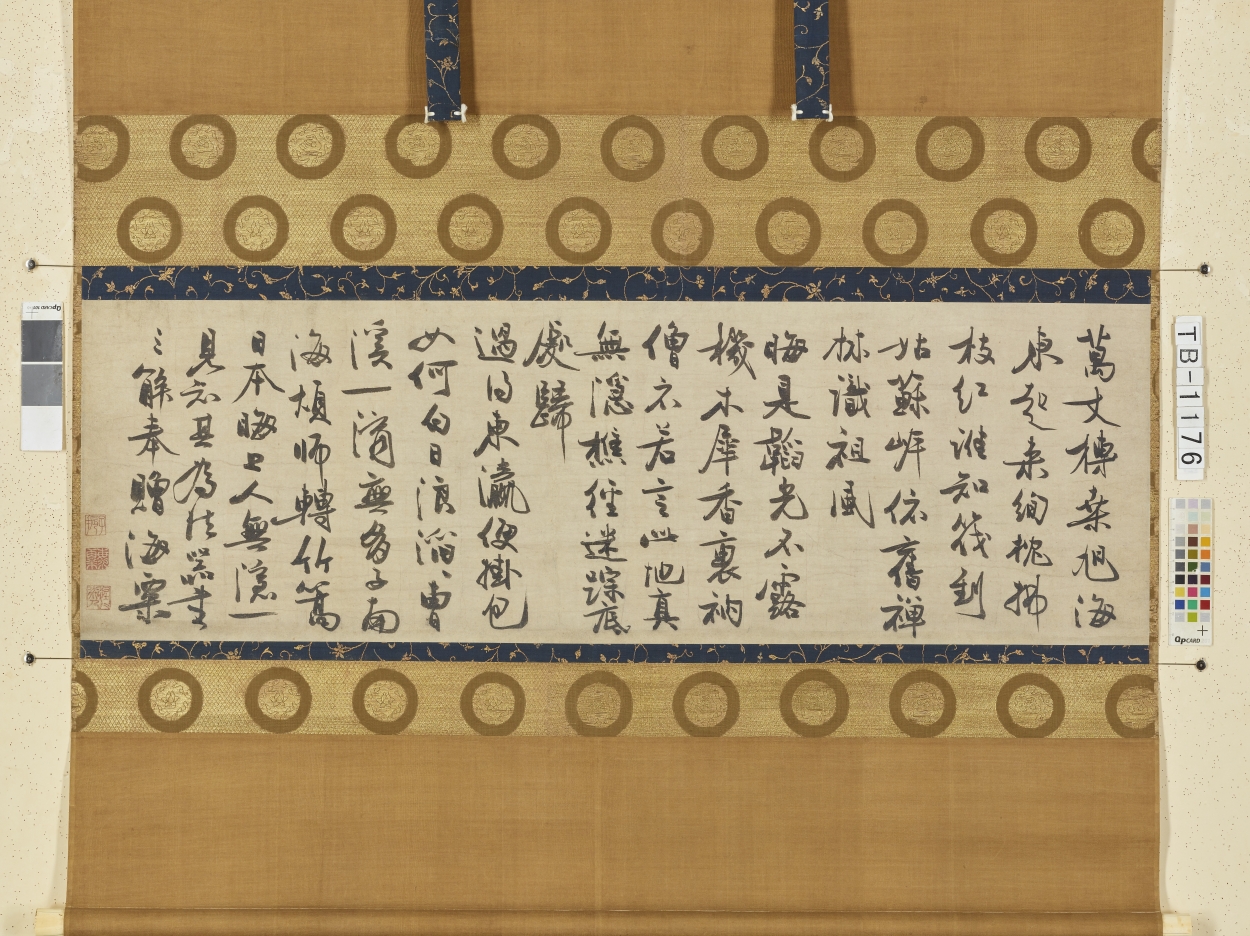 萬丈榑桒旭海
東起来絢枕拂
枝紅誰知筏到
姑蘇岸依舊禅
林識祖風
晦是韜光不露
機木犀香裏衲
僧衣若言此地真
無隱樵徑迷蹤底
處歸
過得東瀛便掛包
如何白日浪滔〻曹
溪一滴無多子南
海煩師轉竹篙
日本晦上人無隱一
見知其為法器書
之餘奉贈海粟
TB-1176
QPCARD